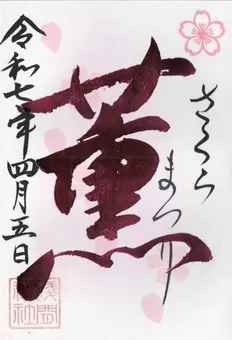 さくら
まつり
薫
令和七年四月五日
浅間
神社